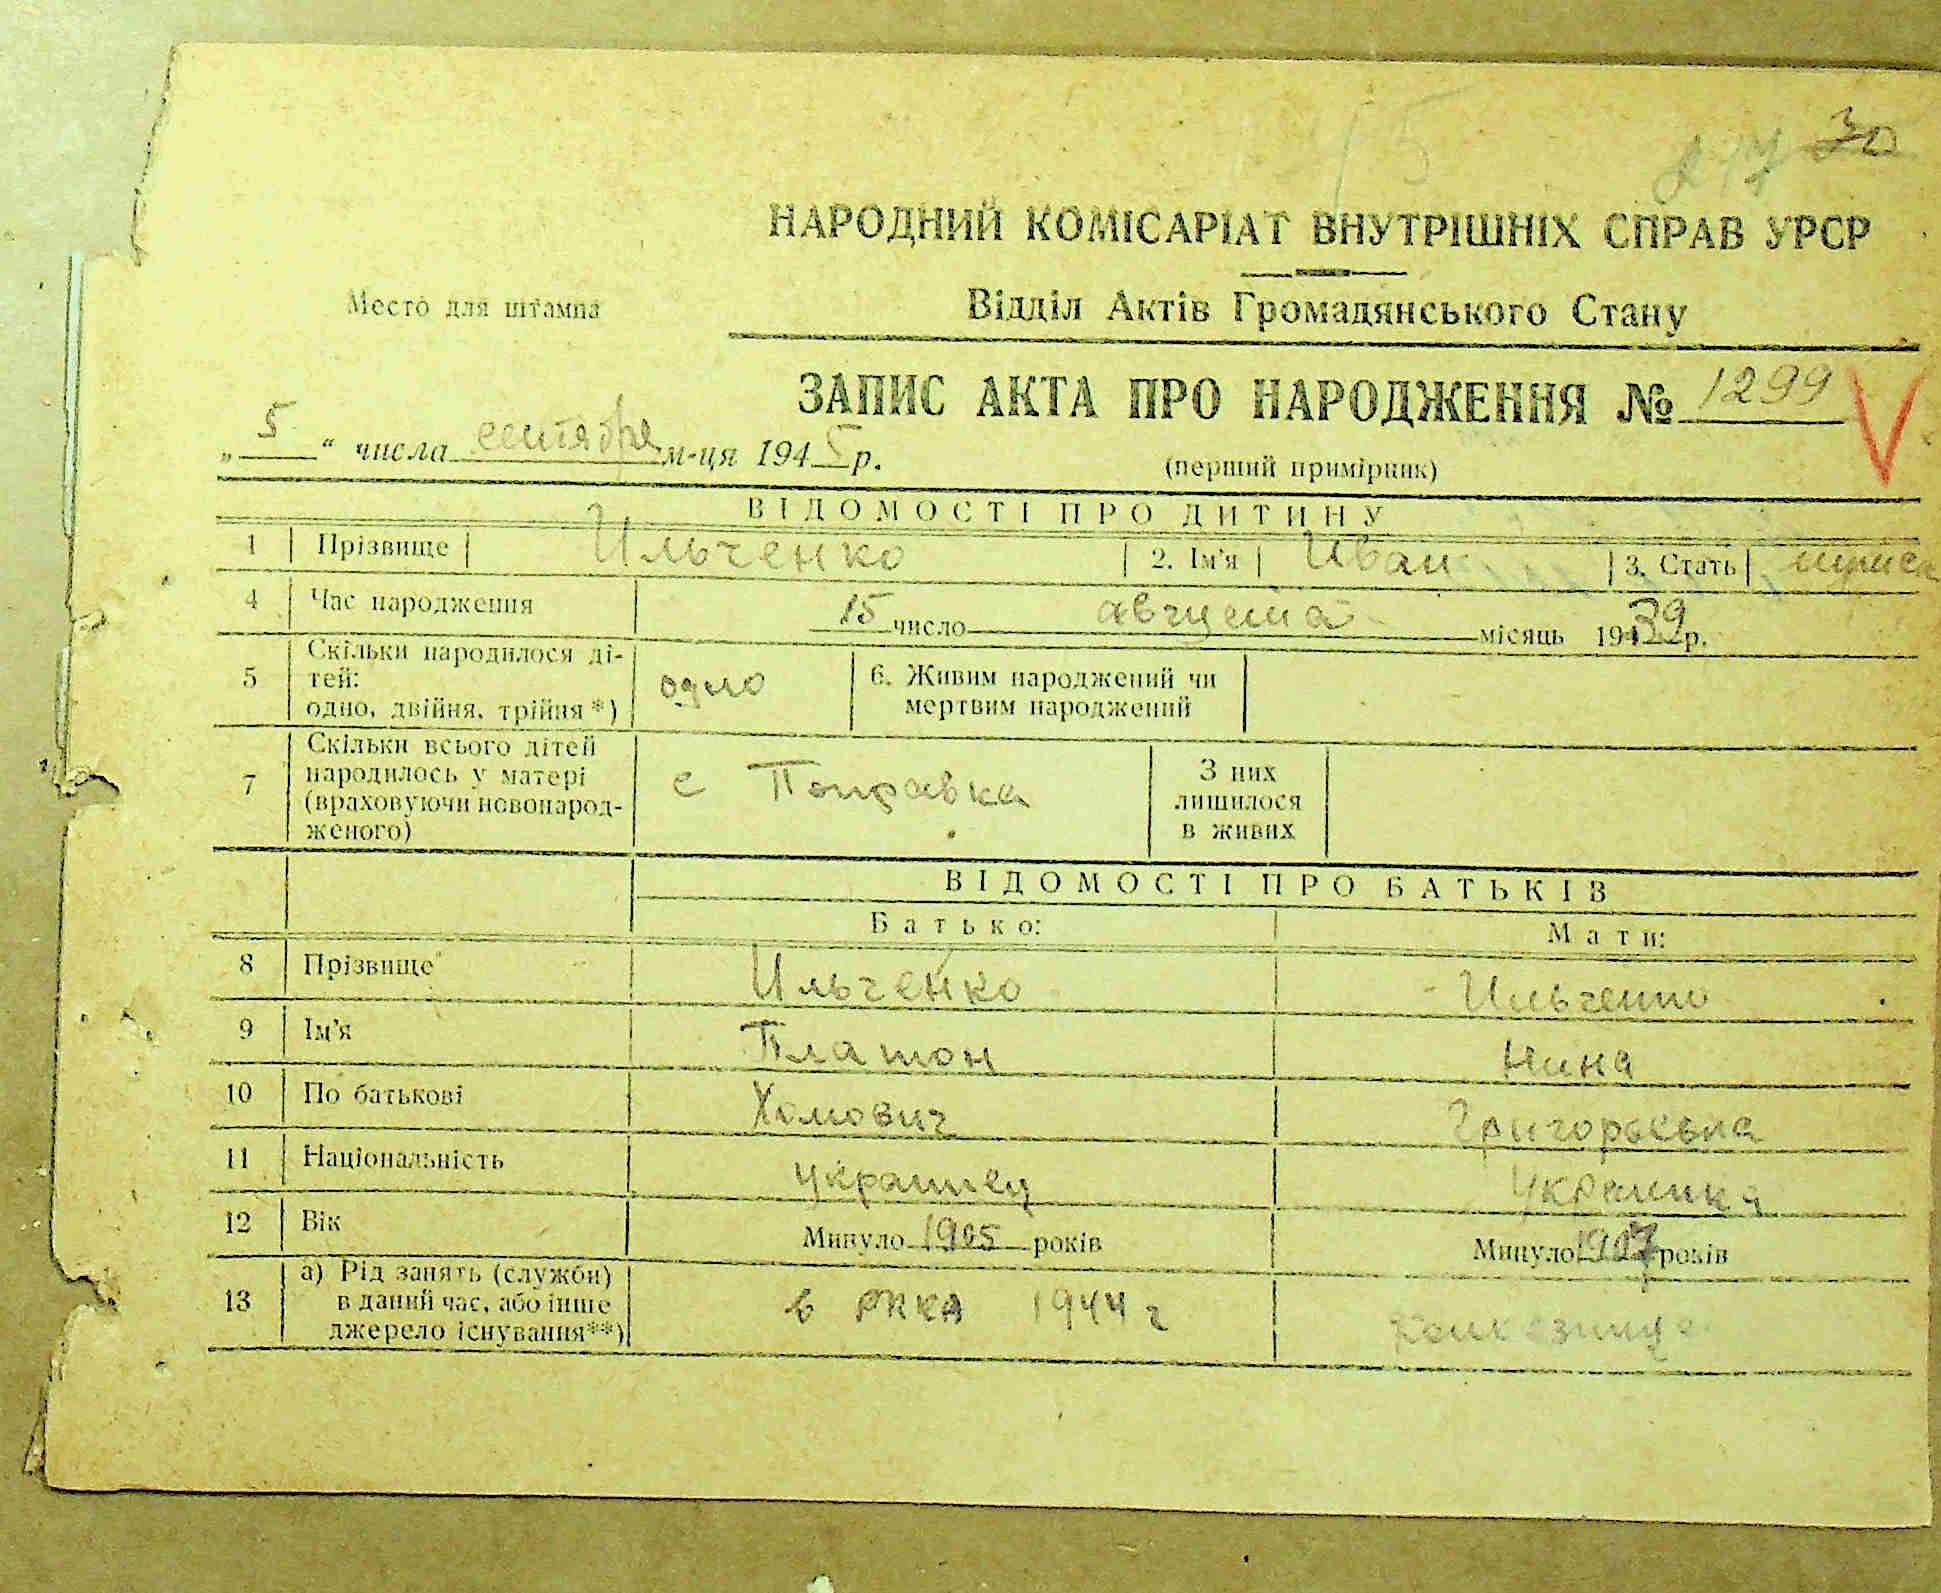 217 30
НАРОДНИЙ КОМІСАРІАТ ВНУТРІШНІХ СПРАВ УРСР
Место для штампа
Відділ Актів Громадянського Стану
ЗАПИС АКТА ПРО НАРОДЖЕННЯ № 1299
„5“ числа сентября м-ця 1945 р.
(перший примірник)
ВІДОМОСТІ ПРО ДИТИНУ
1 Прізвище Ильченко 2. Ім'я Иван 3. Стать мужск
4 Час народження 15 число августа місяць 1939 р.
5 Скільки народилося ді-
тей:
одно, двійня, трійня *) одно 6. Живим народжений чи
мертвим народжений
7 Скільки всього дітей
народилось у матері
(враховуючи новонарод-
женого) с Поправка З них
лишилося
в живих
ВІДОМОСТІ ПРО БАТЬКІВ
Батько: Мати:
8 Прізвище Ильченко Ильченко
9 Ім'я Платон Нина
10 По батькові Хомович Григорьевна
11 Національність украинец Украинка
12 Вік Минуло 1905 років Минуло 1907 років
13 а) Рід занять (служби)
в даний час, або інше
джерело існування**) в РККА 1944 г